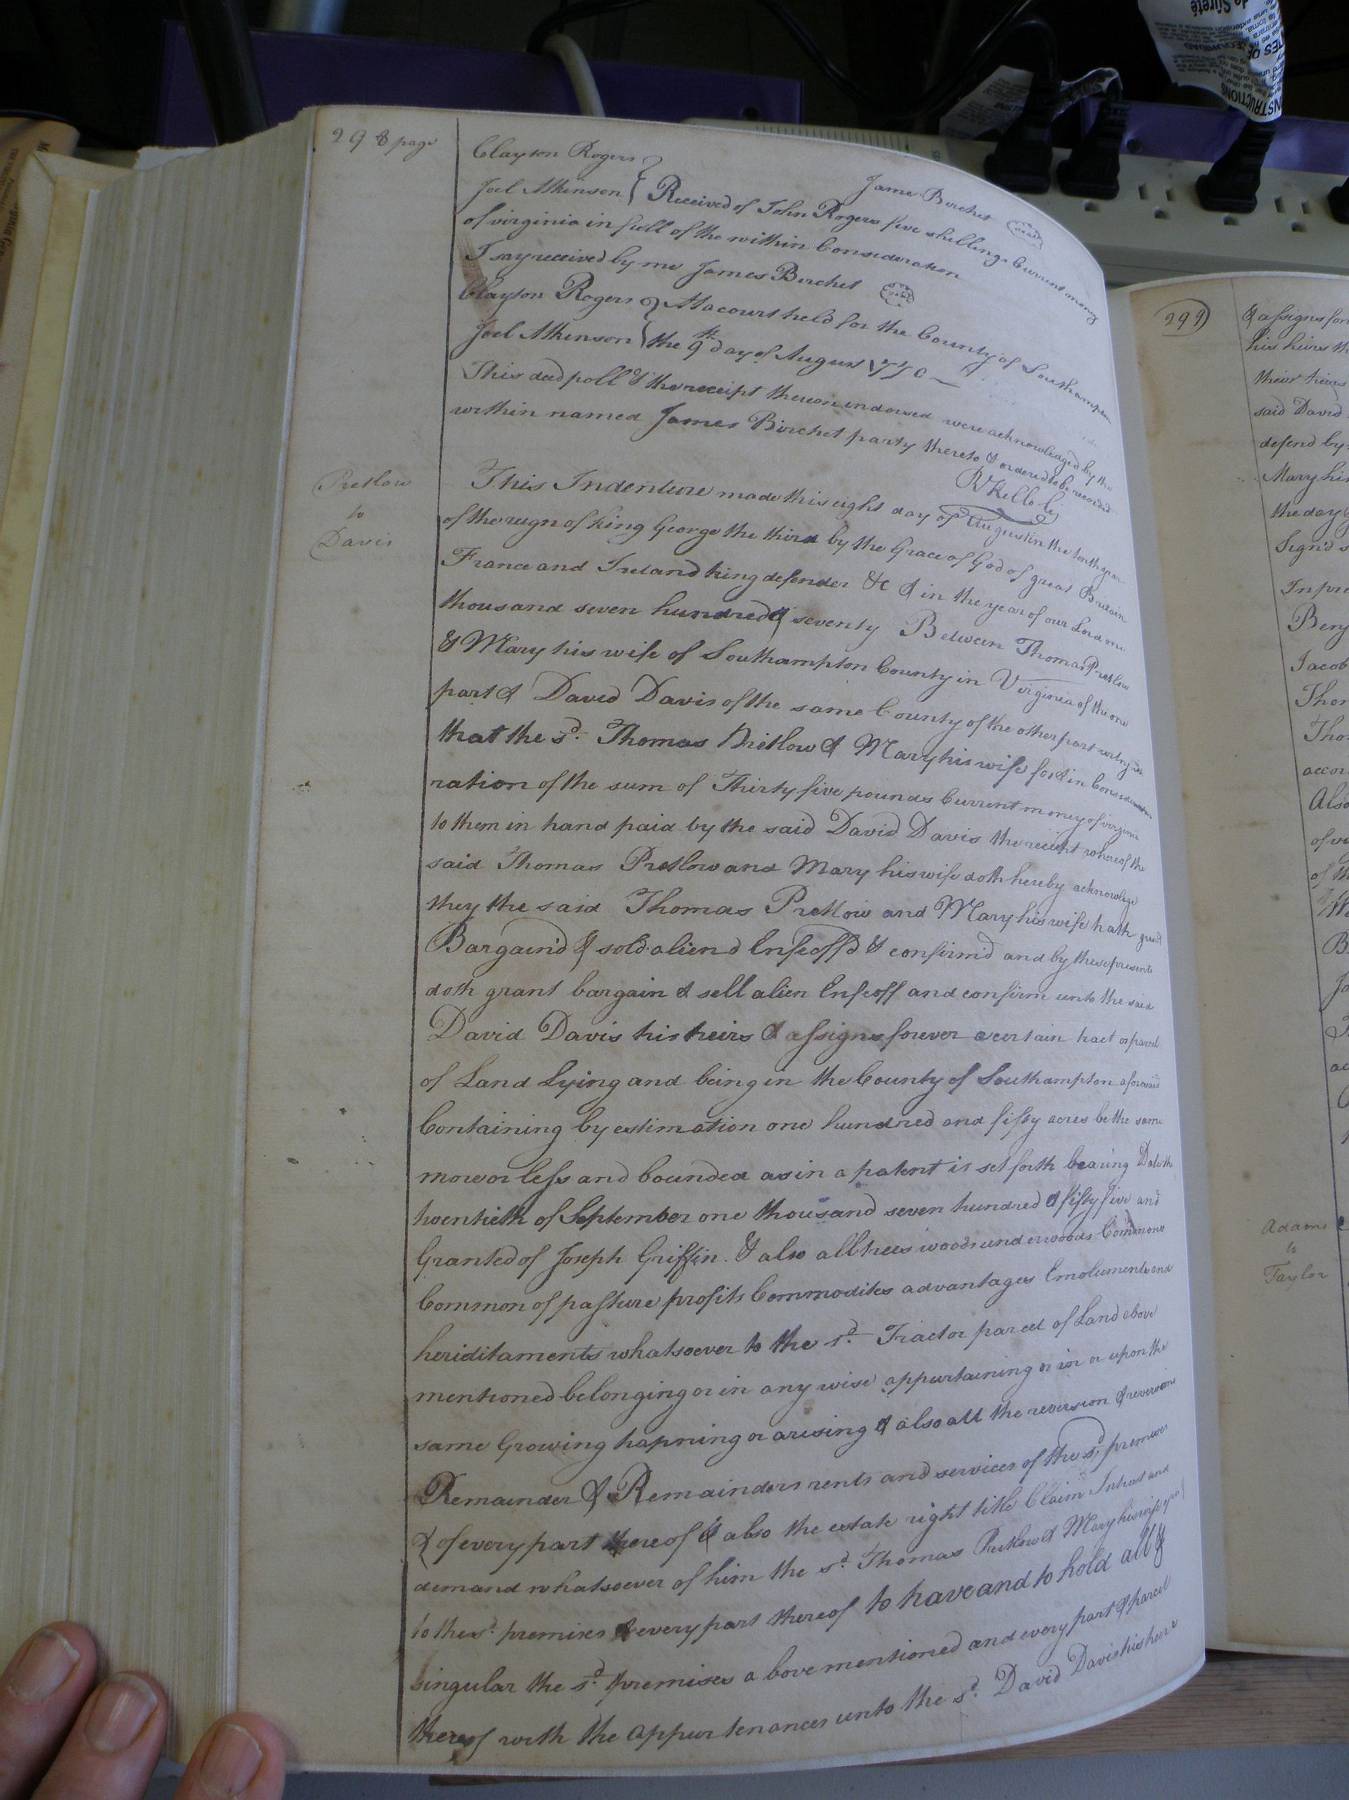 298 page
Clayton Rogers
James Birchet seal
Joel Atkinson Received of John Rogers five shillings Current money
of virginia in full of the within Consideration
I say received by me James Birchet seal
Clayton Rogers At a court held for the County of Southampton
Joel Atkinson the 9th day of August 1770
This deed poll & the receipt thereon indorsed were acknowledged by the
within named James Birchet party thereto & ordered to be recorded
Pretlow
to
Davis
This Indenture made this eight day of August in the tenth year
of the reign of King George the third by the Grace of God of great Britain
France and Ireland King defender &c & in the year of our Lord one
thousand seven hundred & seventy Between Thomas Pretlow
& Mary his wife of Southampton County in Virginia of the one
part & David Davis of the same County of the other part
that the sd. Thomas Pretlow & Mary his wife for & in Conside
ration of the sum of Thirty five pounds Current money of virginia
to them in hand paid by the said David Davis the receipt whereof the
said Thomas Pretlow and Mary his wife doth hereby acknowlege
they the said Thomas Pretlow and Mary his wife hath
Bargain'd & sold alien'd Enfeoff'd & confirm'd and by these presents
doth grant bargain & sell alien Enfeoff and confirm unto the said
David Davis his heirs & assigns forever a certain tract or parcel
of Land Lying and being in the County of Southampton aforesaid
Containing by estimation one hundred and fifty acres be the same
more or less and bounded as in a patent is set forth bearing Date the
twentieth of September one thousand seven hundred & fifty five and
Granted of Joseph Griffin. & also all trees woods underwoods Commons
Common of pasture profits Commodites advantages Emoluments and
heriditaments whatsoever to the sd. Tract or parcel of Land above
mentioned belonging or in any wise appurtaining or in or upon the
same Growing hapning or arising & also all the reversion & reversions
Remainder & Remainders rents and services of the sd. premises
& of every part thereof & also the estate right title Claim Intrest and
demand whatsoever of him the sd. Thomas Pretlow & Mary his wife
to the sd. premises & every part thereof to have and to hold all &
Singular the sd. premises above mentioned and every part & parcel
thereof with the appurtenances unto the sd. David Davis his heirs
299
& assigns for
his heirs
their heirs
said David
defend by
Mary his
the day
Sign'd
In pre
Benj
Jacob
Thom
Tho
accor
Also
Adams
to
Taylor